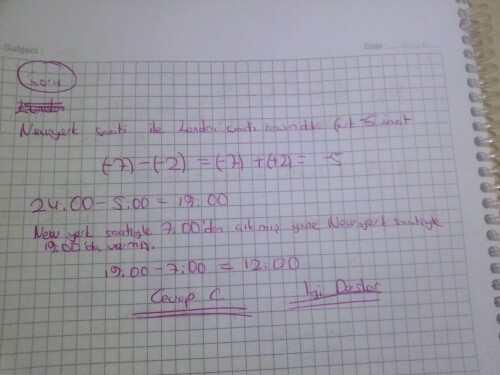 Subject :
Date :
Soru
Newyork saati ile Londra saati arasındaki fark 5 saat
(-7)-(-2) = (-7) + (+2) = -5
24:00 - 5:00 = 19:00
New york saatiyle 7:00'dan çıkmış yine Newyork saatiyle
19:00'da varmış.
19:00 - 7:00 = 12:00
Cevap C
İyi Dersler